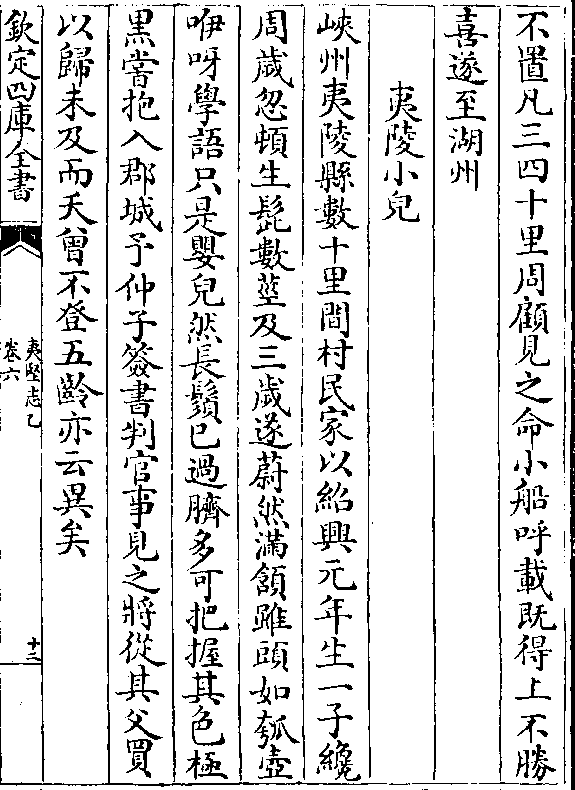 不置凡三四十里周顧見之命小船呼載既得上不勝
喜遂至湖州
夷陵小兒
峽州夷陵縣數十里間村民家以紹興元年生一子纔
周歲忽頓生髭數莖及三歲遂蔚然滿頷雖頭如瓠壺
咿呀學語只是嬰兒然長鬚已過臍多可把握其色極
黑嘗抱入郡城予仲子簽書判官事見之將從其父買
以歸未及而夭曾不登五齡亦云異矣
欽定四庫全書
夷堅志乙
卷六
十三